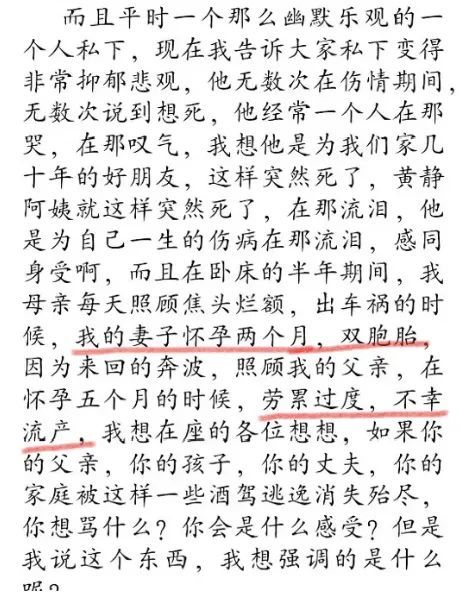 而且平时一个那么幽默乐观的一
个人私下，现在我告诉大家私下变得
非常抑郁悲观，他无数次在伤情期间，
无数次说到想死，他经常一个人在那
哭，在那叹气，我想他是为我们家几
十年的好朋友，这样突然死了，黄静
阿姨就这样突然死了，在那流泪，他
是为自己一生的伤病在那流泪，感同
身受啊，而且在卧床的半年期间，我
母亲每天照顾焦头烂额，出车祸的时
候，我的妻子怀孕两个月，双胞胎，
因为来回的奔波，照顾我的父亲，在
怀孕五个月的时候，劳累过度，不幸
流产，我想在座的各位想想，如果你
的父亲，你的孩子，你的丈夫，你的
家庭被这样一些酒驾逃逸消失殆尽，
你想骂什么？你会是什么感受？但是
我说这个东西，我想强调的是什么
呢？